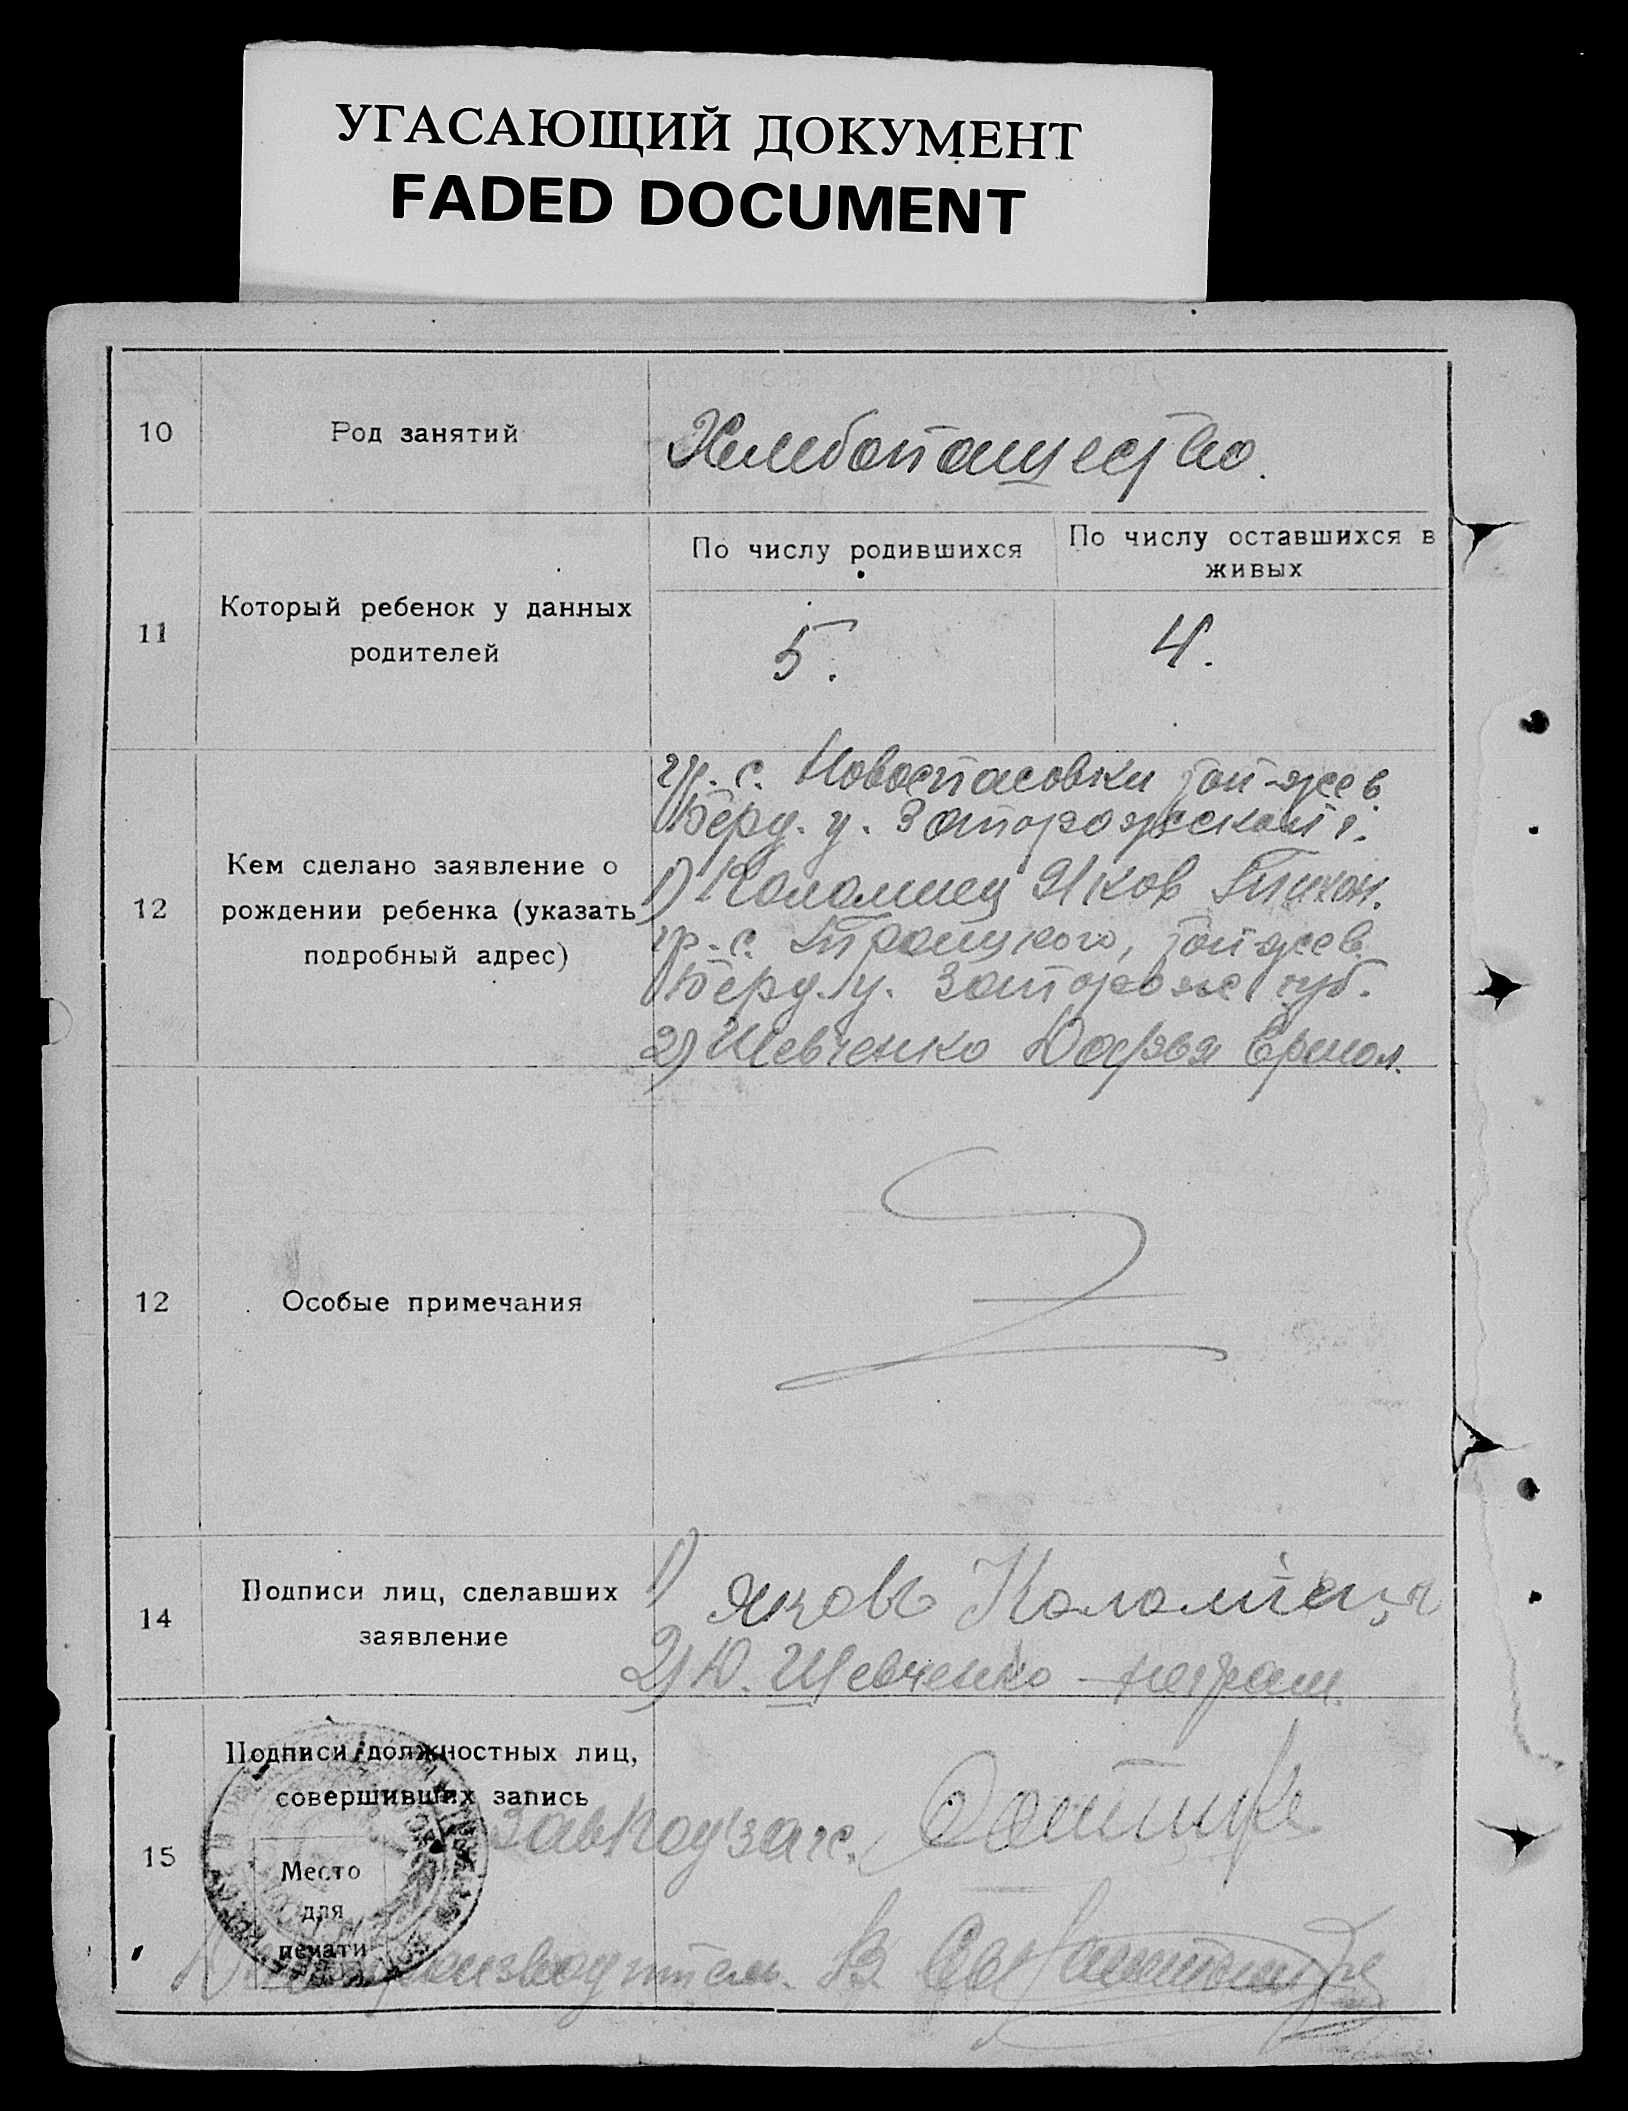 УГАСАЮЩИЙ ДОКУМЕНТ
FADED DOCUMENT
10
Род занятий
Хлебопашество.
11
Который ребенок у данных
родителей
По числу родившихся
По числу оставшихся в
живых
5.
4.
12
Кем сделано заявление о
рождении ребенка (указать
подробный адрес)
гр. с. Новоспасовки той-же в.
Берд. у. Запорожской г.
1) Коломиец Яков Тихон.
гр. с. Троицкого, той же в.
Берд. у. Запорож губ.
2) Шевченко Дарья Ермол.
12
Особые примечания
14
Подписи лиц, сделавших
заявление
1) Яковъ Коломіецъ
2) Д. Шевченко - неграм.
15
Подписи должностных лиц,
совершивших запись
Место
для
печати
Завподзагс.
Делопроизводитель. В.